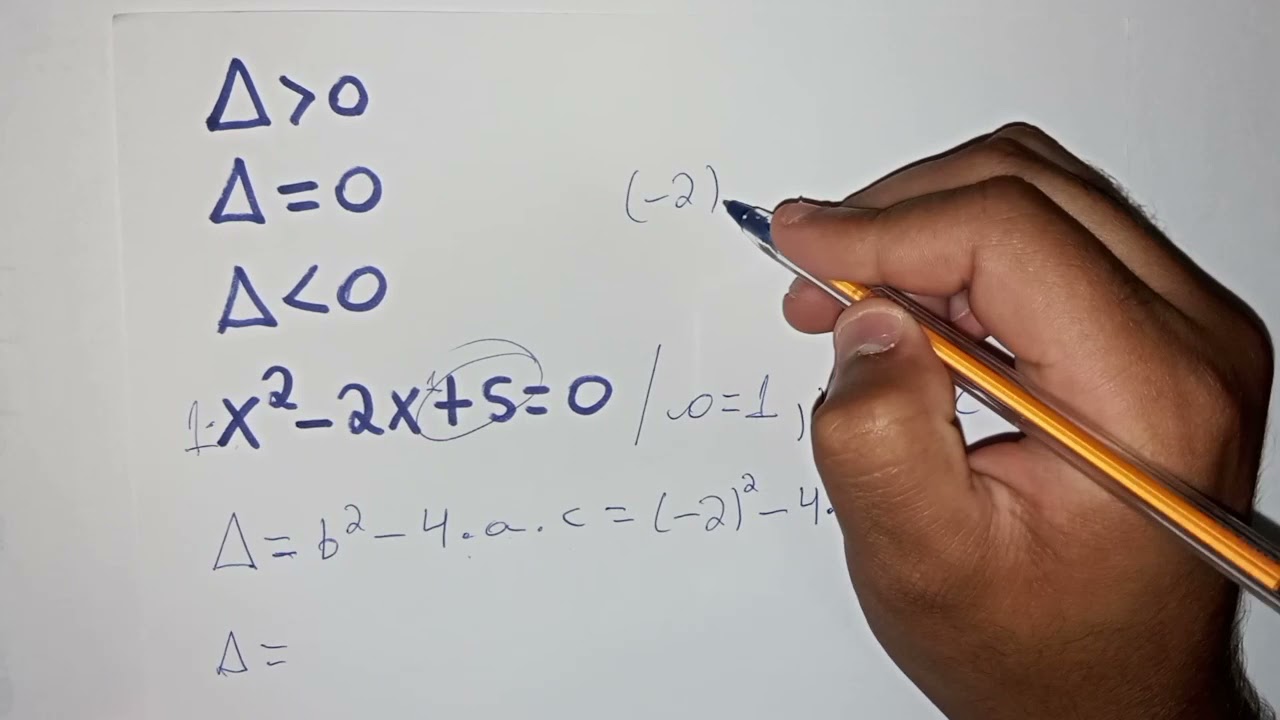 Δ>0
Δ=0
(-2)
Δ<0
1·x²-2x+5=0 / a=1, c
Δ=b²-4·a·c=(-2)²-4·
Δ=